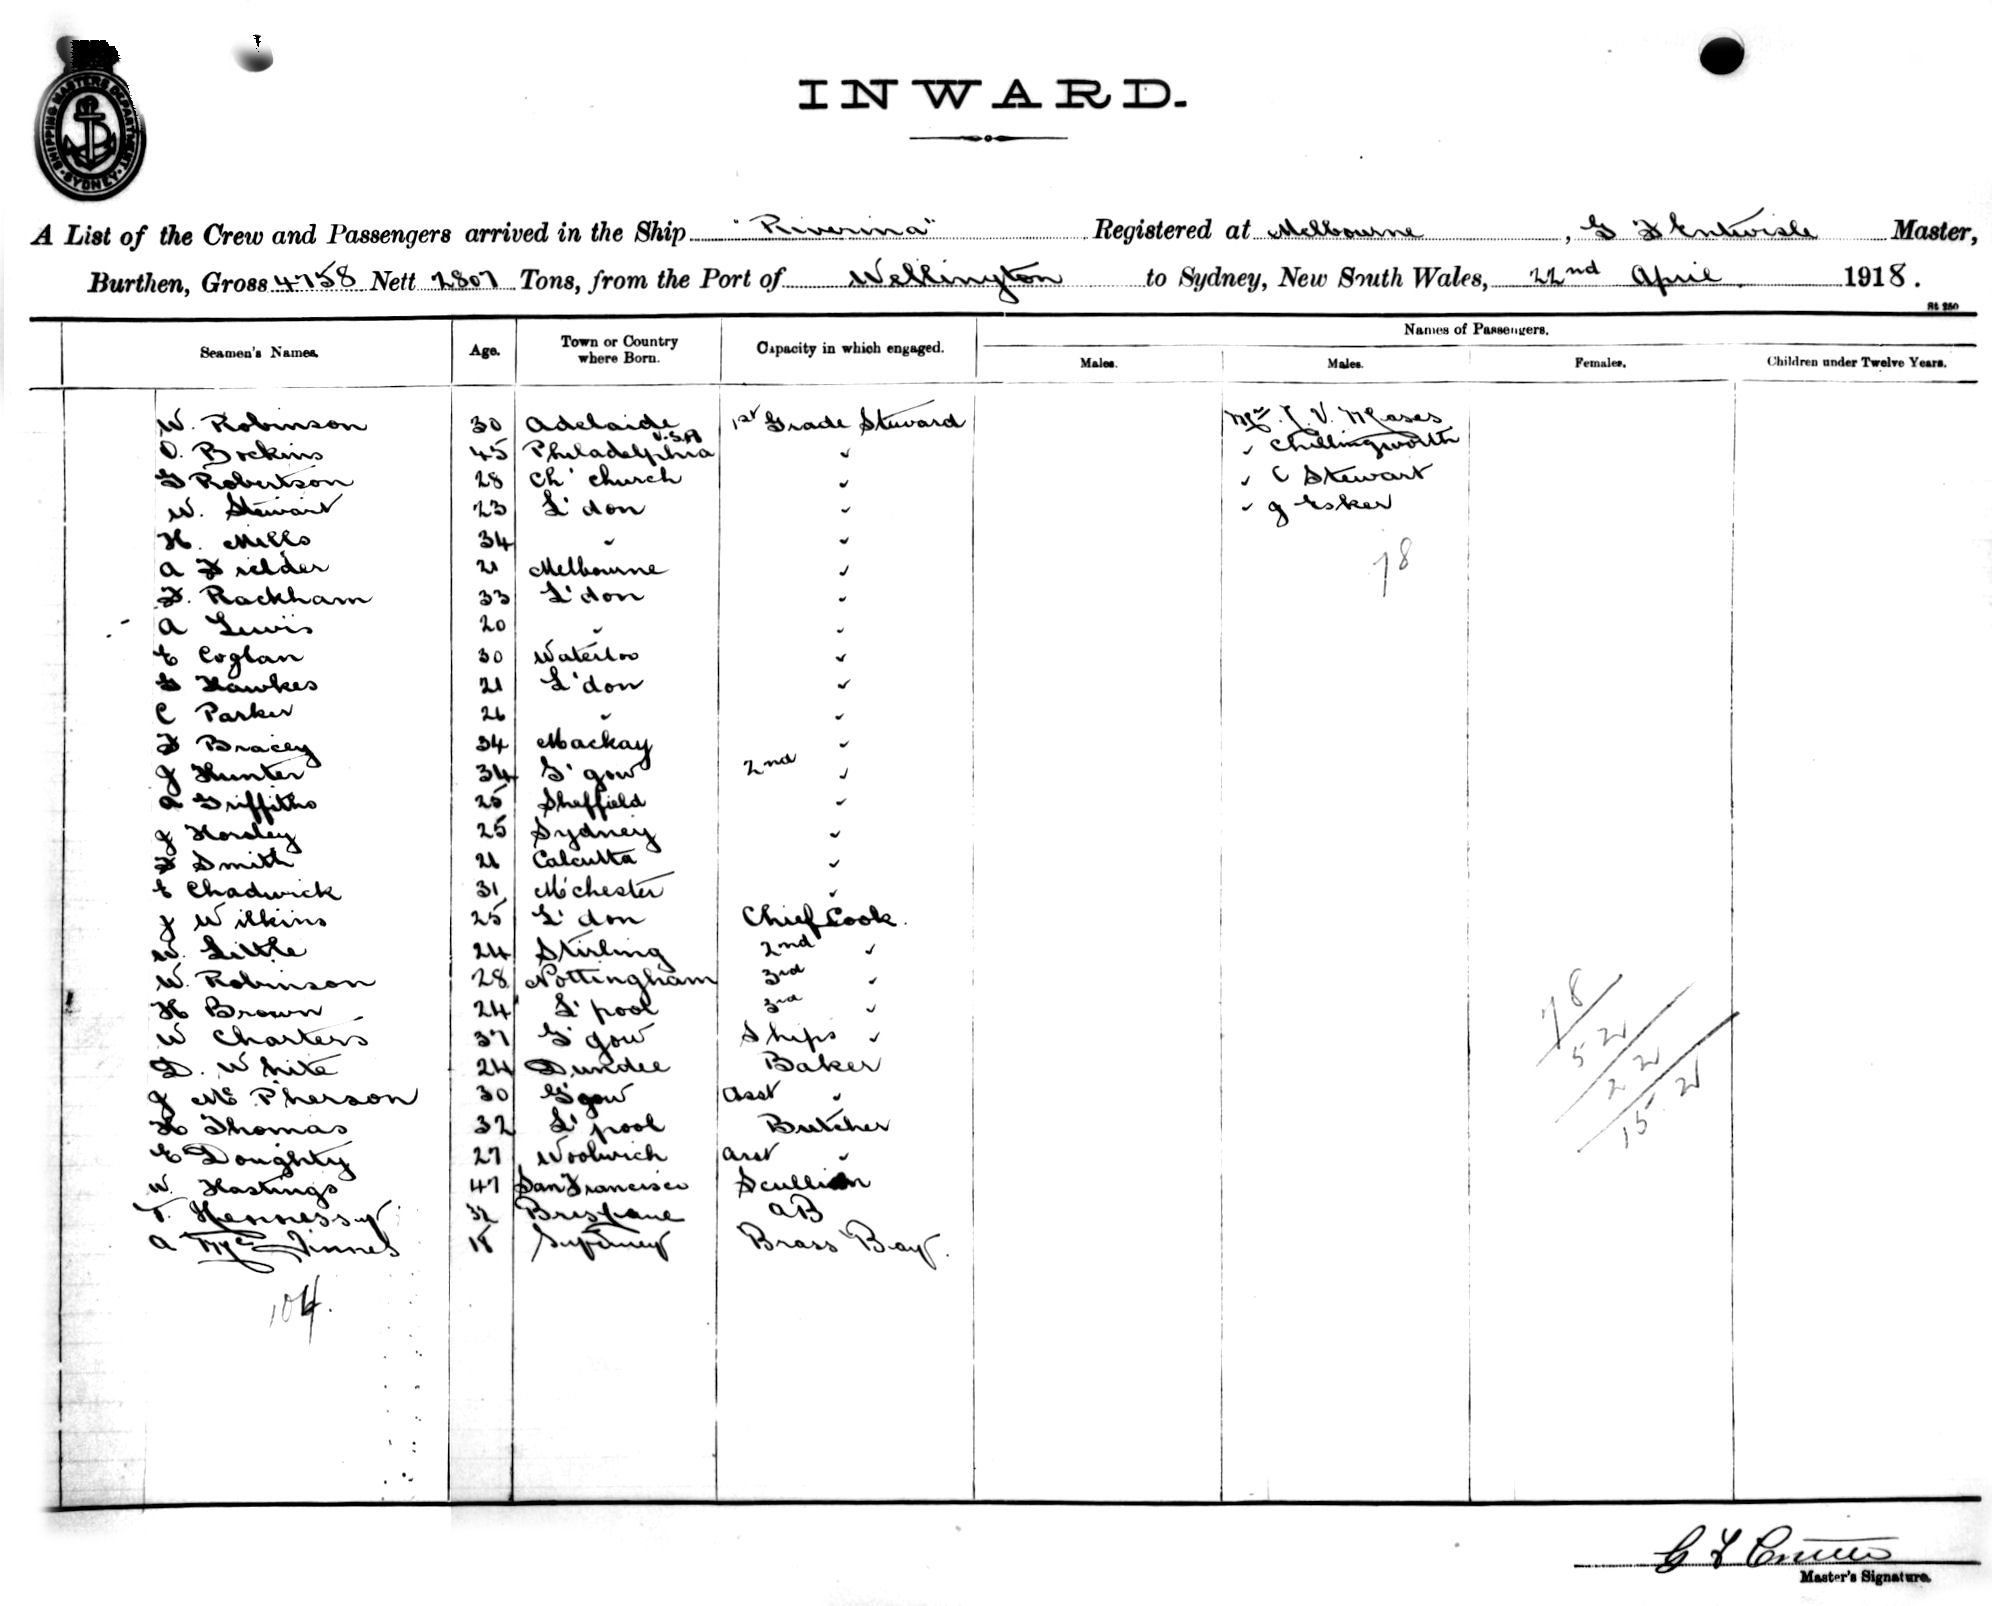 SHIPPING MASTERS DEPARTMENT
SYDNEY
INWARD.
A List of the Crew and Passengers arrived in the Ship "Riverina" Registered at Melbourne, G F Entwisle Master,
Burthen, Gross 4758 Nett 2807 Tons, from the Port of Wellington to Sydney, New South Wales, 22nd April 1918.
St 250
Seamen's Names. Age. Town or Country where Born. Capacity in which engaged. Names of Passengers.
Males. Males. Females. Children under Twelve Years.
W. Robinson 30 Adelaide 1st Grade Steward Mr. J. V. Moses
Bockins 45 Philadelphia U.S.A ✓ ✓ Chillingworth
G Robertson 28 Ch'church ✓ ✓ C Stewart
W. Stewart 23 L'don ✓ ✓ J Esker
H. Mills 34 ✓ ✓
A Fielder 21 Melbourne ✓ 78
F. Rackham 33 L'don ✓
A Lewis 20 ✓ ✓
E Coglan 30 Waterloo ✓
G Hawkes 21 L'don ✓
C Parker 26 ✓ ✓
F Bracey 34 Mackay ✓
J Hunter 34 G'gow 2nd ✓
A Griffiths 25 Sheffield ✓
J Horsley 25 Sydney ✓
F Smith 26 Calcutta ✓
E Chadwick 31 M'chester ✓
J Wilkins 25 L'don Chief Cook.
W. Little 24 Stirling 2nd ✓
W. Robinson 28 Nottingham 3rd ✓
H Brown 24 L'pool 3rd ✓
W Charters 37 G'gow Ships ✓
D. White 24 Dundee Baker
J McPherson 30 G'gow Asst ✓
H Thomas 32 L'pool Butcher
E Doughty 27 Woolwich Asst ✓
W. Hastings 47 San Francisco Scullion
T. Hennessy 32 Brisbane AB
A 18 Sydney Brass Boy.
78
52
22
152
104.
Master's Signature.